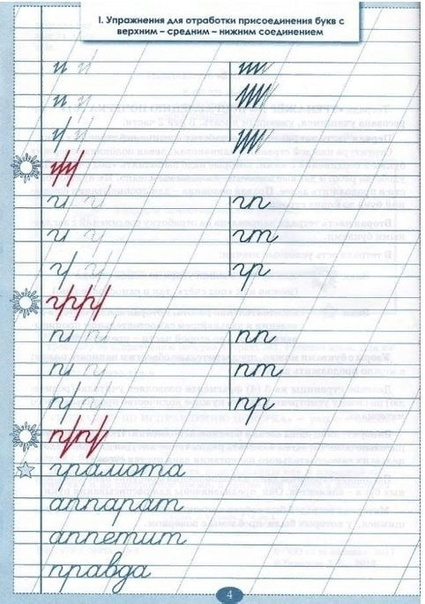 I. Упражнения для отработки присоединения букв с
верхним – средним – нижним соединением
гп
гт
гр
пп
пт
пр
грамота
аппарат
аппетит
правда
4